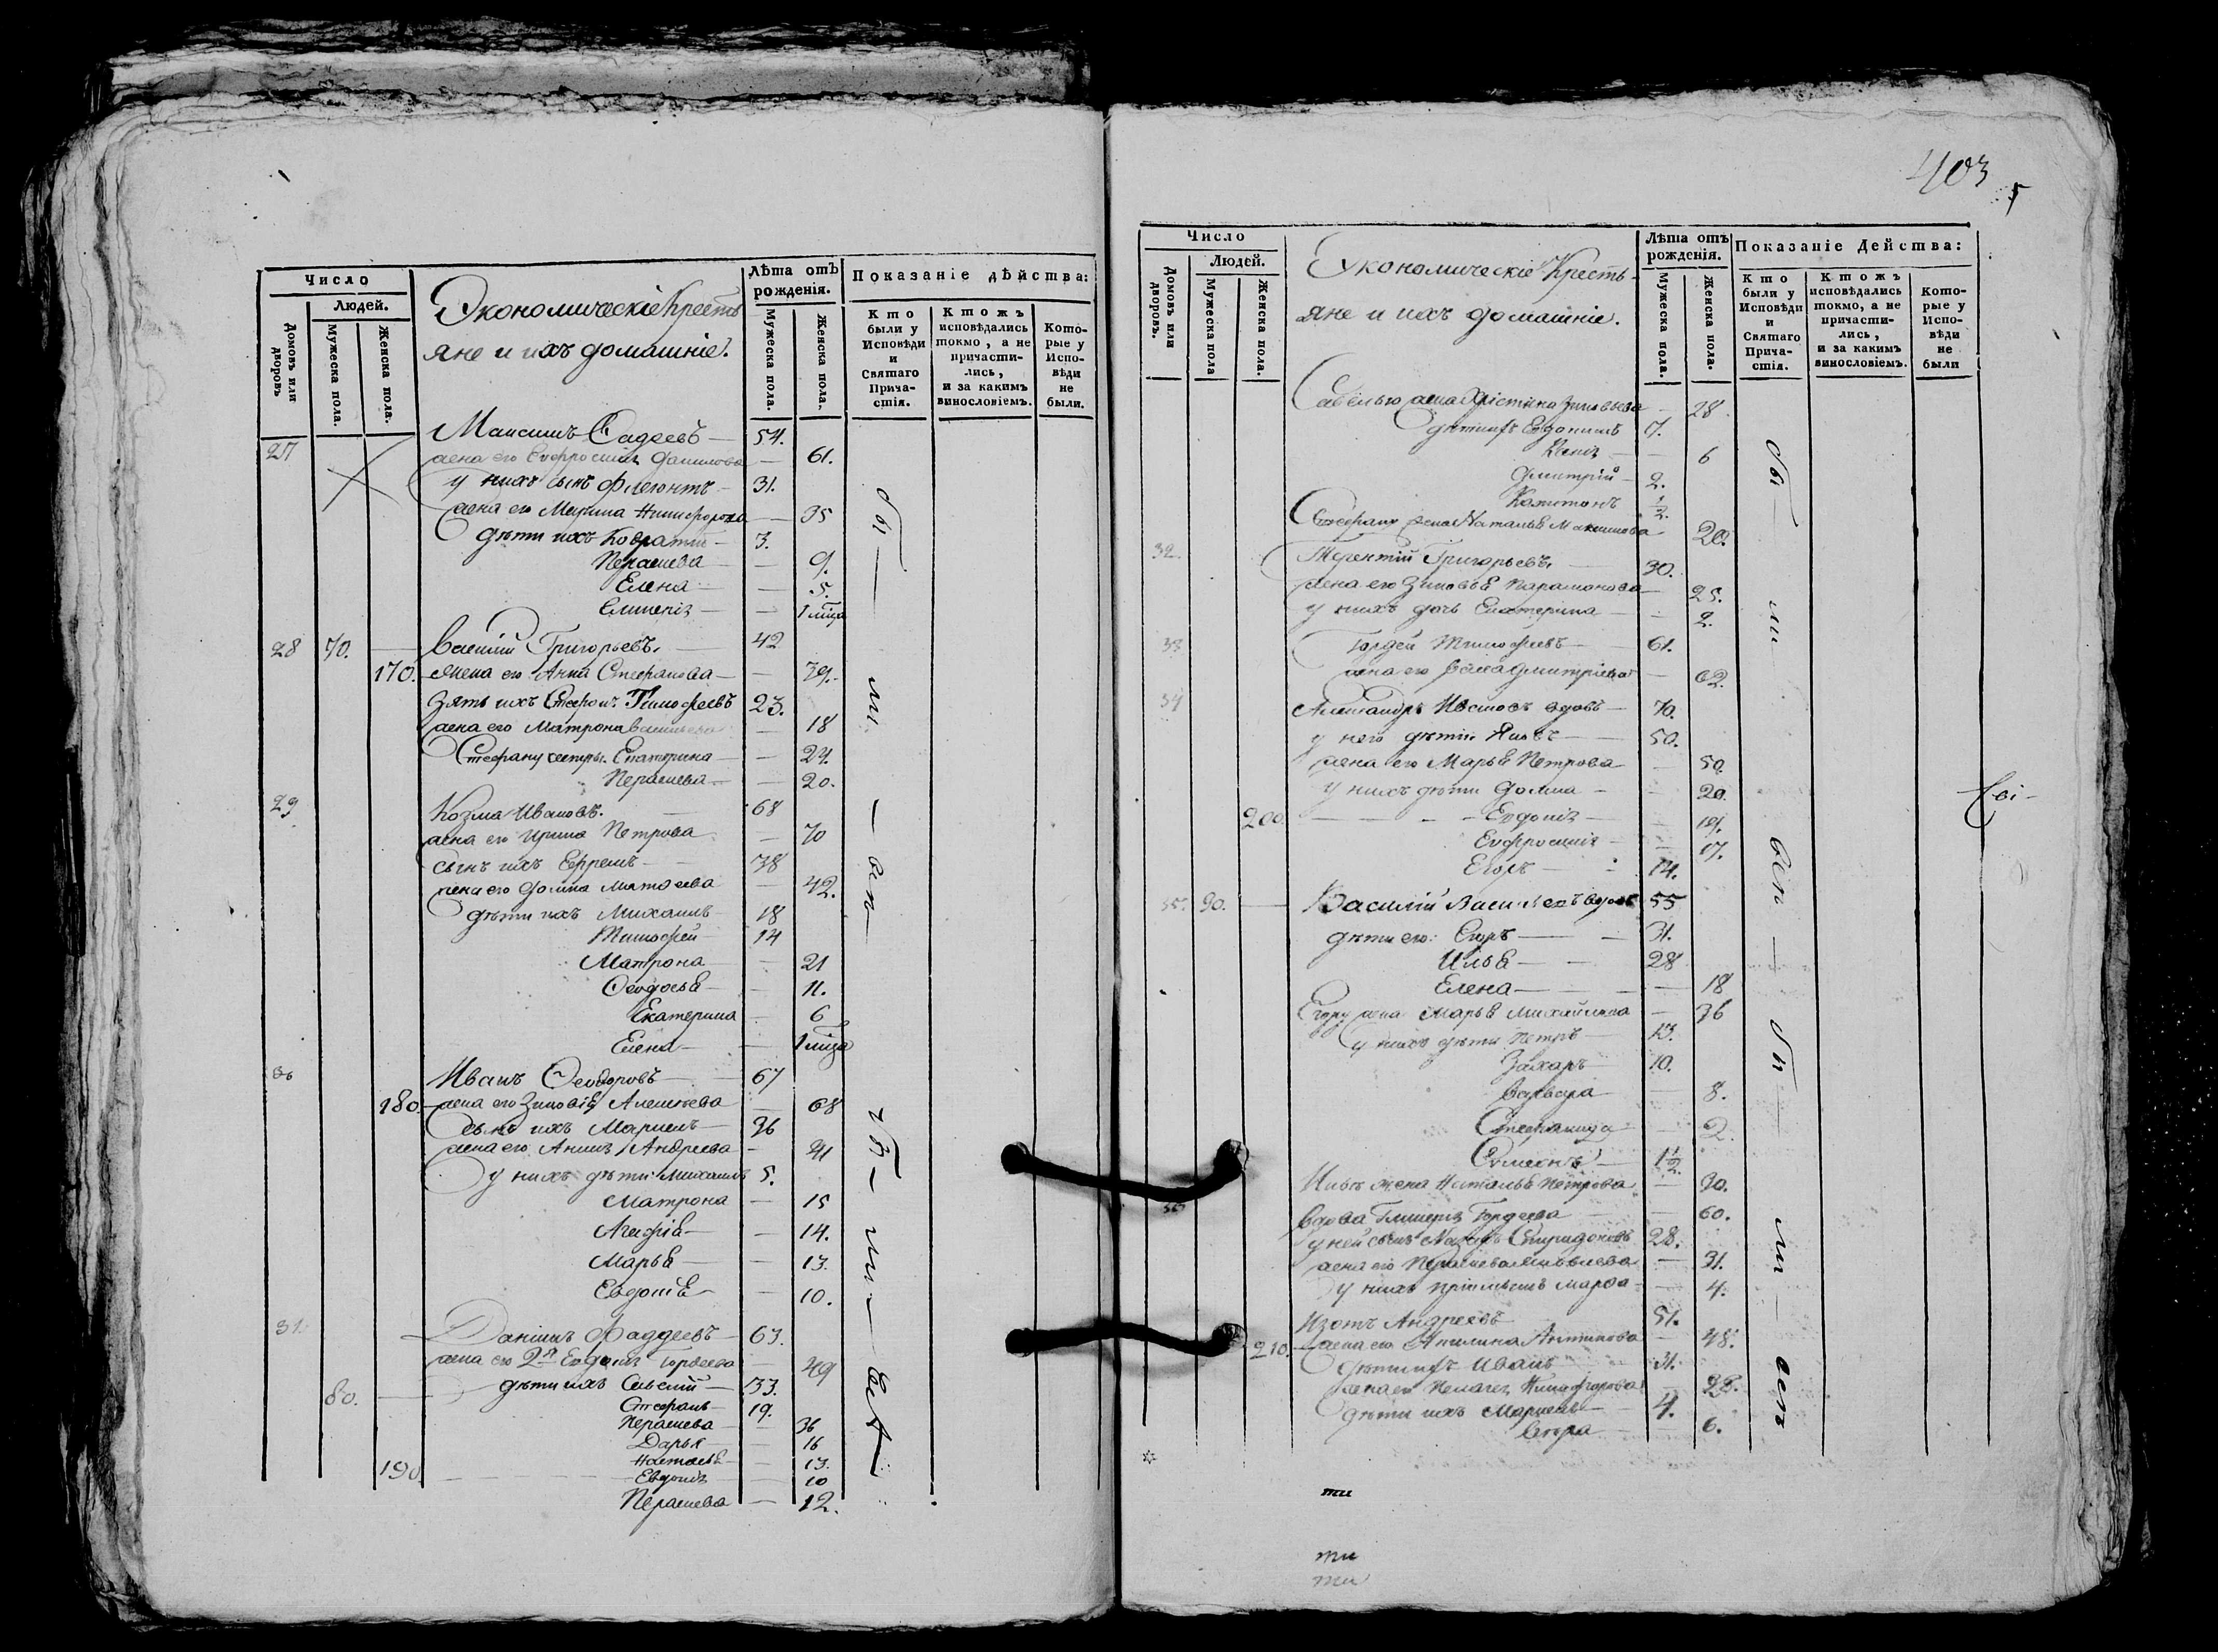 Число
Людей.
Домовъ или дворовъ
Мужеска пола.
Женска пола.
Экономическіе Кресть
яне и ихъ домашніе.
Лѣта отъ рожденія.
Мужеска пола.
Женска пола,
Показаніе дѣйства:
Кто были у Исповѣди и Святаго Прича- стія.
Ктожъ исповѣдались токмо, а не причасти- лись, и за какимъ винословіемъ.
Кото- рые у Испо- вѣди не были.
27 Максимъ Фадеевъ — 54.
жена его Евфросинія Данилова — 61.
у нихъ сынъ Флегонтъ — 31.
жена его Марина Никифорова — 35
дѣти ихъ Кодратій — 3.
Параскева — 9.
Елена — 5.
28 70. Василій Григорьевъ. 42
170. жена его Анна Стефанова — 39.
зять ихъ Стефанъ Тимофеевъ 23.
жена его Матрона Васильева — 18
Стефану сестры Екатерина — 24.
Параскева — 20.
29 Козма Ивановъ. 68
жена его Ирина Петрова — 70
сынъ ихъ Ефремъ — 38
жена его Домна Матвеева — 42.
дѣти ихъ Михаилъ 18
Тимофей 14
Матрона — 21
Феодосья — 11.
Екатерина — 6
Елена —
30 Иванъ Феодоровъ 67
180. жена его Зиновія Алексеева — 68
сынъ ихъ Маркелъ — 36
жена его Анна Андреева — 41
у нихъ дѣти Михаилъ 5.
Матрона — 15
Агафія — 14.
Марья — 13.
Евдокія — 10.
31. Даніилъ Фаддеевъ — 63.
жена его 2я Евдокія Гордеева — 49
80. дѣти ихъ Савелій — 33.
Стефанъ — 19.
Параскева — 36
Дарья — 16
Настасья — 13.
190. Евдокія 10
Параскева — 12.
бы — ли — вси — бы — ли — вси
403
Число
Людей.
Домовъ или дворовъ.
Мужеска пола
Женска пола.
Экономическіе Кресть-
яне и ихъ домашніе.
Лѣта отъ рожденія.
Мужеска пола.
Женска пола.
Показаніе Действа:
Кто были у Исповѣди и Святаго Прича- стія.
Ктожъ исповѣдались токмо, а не причасти- лись, и за какимъ винословіемъ.
Кото- рые у Испо- вѣди не были
Савелью жена Христина Зиновьева — 28.
дѣти ихъ 7.
Ксенія — 6
Дмитрій 2.
Капитонъ 1/2.
Стефану жена Наталья Максимова 20.
32. Терентій Григорьевъ. 30.
жена его Зиновья Парамонова — 25.
у нихъ дочь Екатерина — 2.
33 Гордей Тимофеевъ — 61.
жена его Дмитріева — 62.
34 Александръ Ивановъ вдовъ — 70.
у него дѣти: Яковъ — 50.
жена его Марья Петрова — 50.
у нихъ дѣти Домна — 20.
200. Евдокія — 19.
Евфросинія — 17.
Егоръ — 14.
35. 90. Василій Васильевъ вдовъ 55
дѣти его: Егоръ — 31.
Илья — 28
Елена — 18
Егору жена Марья Михайлова — 36
у нихъ дѣти Петръ — 13.
Захаръ 10.
Варвара — 8.
Стефанида — 2.
Симеонъ 1 1/2.
Ильѣ жена Наталья Петрова — 30.
36 вдова Гликерія Гордеева — 60.
у ней сынъ Спиридоновъ 28.
жена его Параскева — 31.
у нихъ пріемышъ Марфа — 4.
Изотъ Андреевъ 51.
210. жена его Акилина Антипова — 48.
дѣти ихъ Иванъ — 31.
жена его Пелагея Никифорова
дѣти ихъ Маркелъ — 4.
Вѣра — 6.
бы — ли — вси — бы — ли — вси
ти
ти
ти